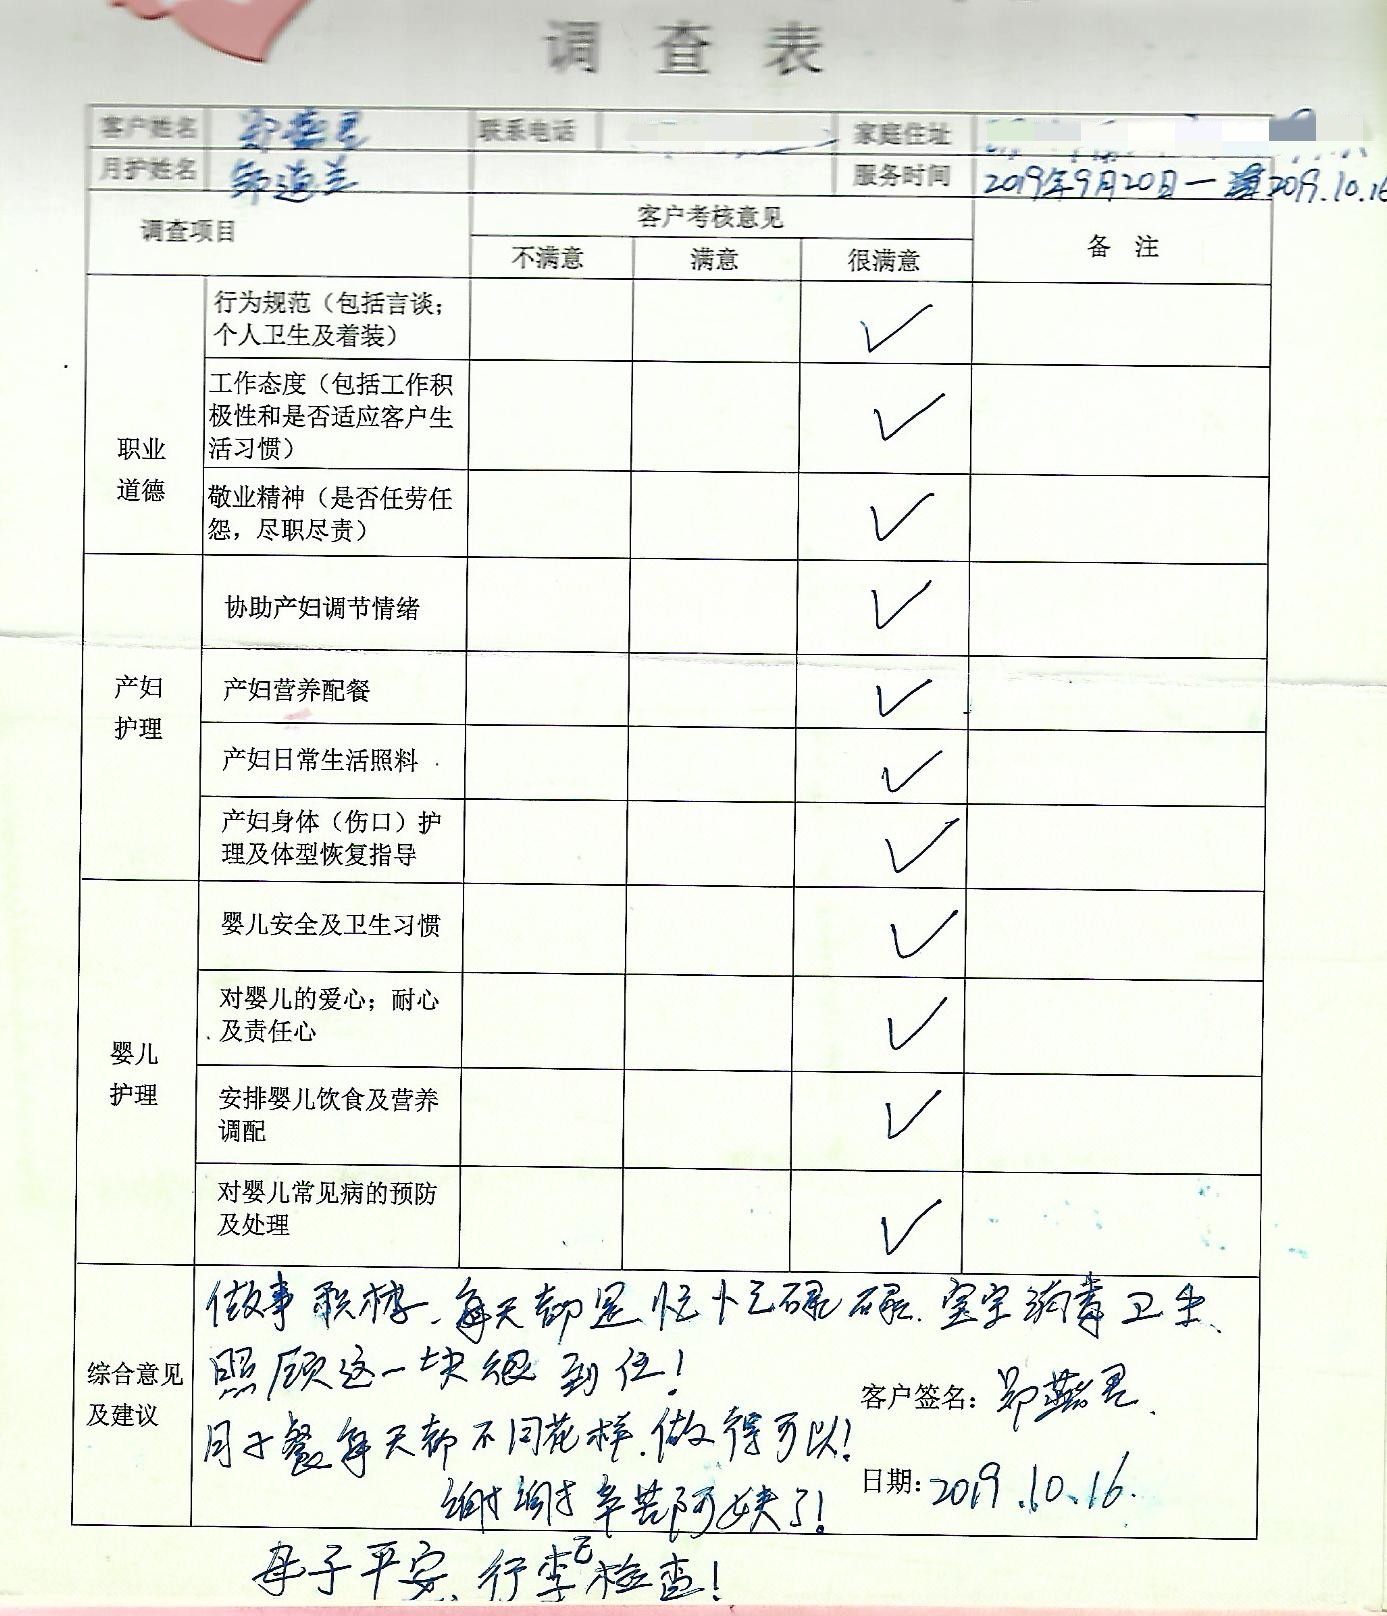 调查表
客户姓名 郑燕君 联系电话 家庭住址
月护姓名 邹连兰 服务时间 2019年9月20日一2019.10.16
调查项目 客户考核意见 备 注
不满意 满意 很满意
职业
道德
行为规范（包括言谈；
个人卫生及着装） ✓
工作态度（包括工作积
极性和是否适应客户生
活习惯） ✓
敬业精神（是否任劳任
怨，尽职尽责） ✓
产妇
护理
协助产妇调节情绪 ✓
产妇营养配餐 ✓
产妇日常生活照料 ✓
产妇身体（伤口）护
理及体型恢复指导 ✓
婴儿
护理
婴儿安全及卫生习惯 ✓
对婴儿的爱心；耐心
及责任心 ✓
安排婴儿饮食及营养
调配 ✓
对婴儿常见病的预防
及处理 ✓
综合意见
及建议
做事积极、每天都是忙忙碌碌、宝宝消毒卫生、
照顾这一块很到位！
月子餐每天都不同花样、做得可以！
谢谢辛苦阿姨了！
客户签名：郑燕君
日期：2019.10.16.
母子平安、行李已检查！